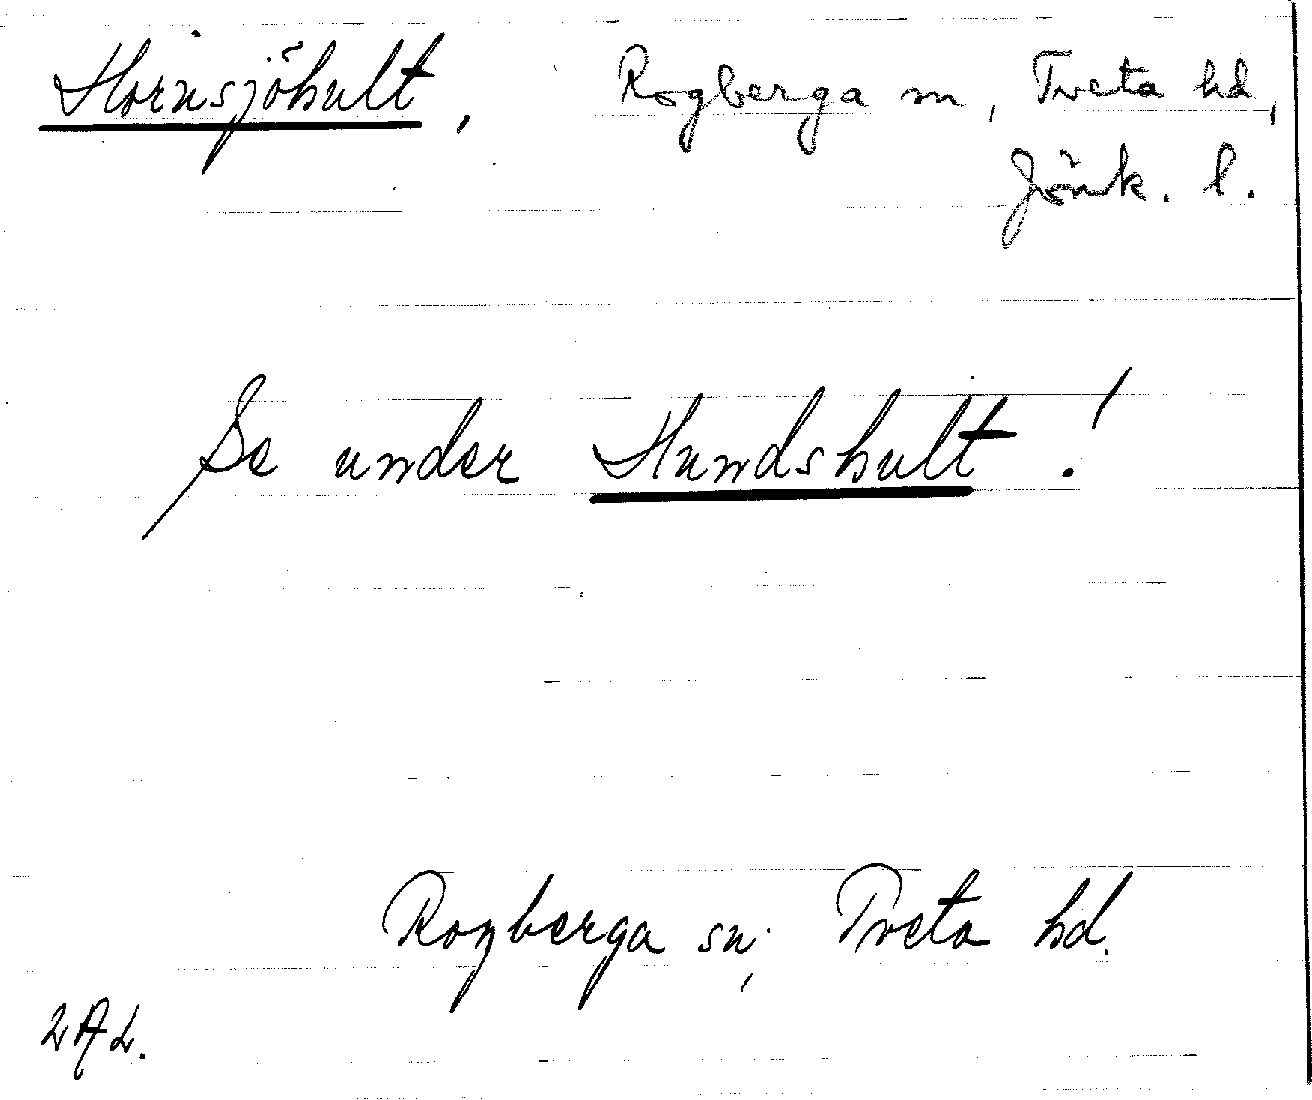 Hornsjöhult, Rogberga sn, Tveta hd,
Jönk. l.
Se under Hundshult!
Rogberga sn, Tveta hd.